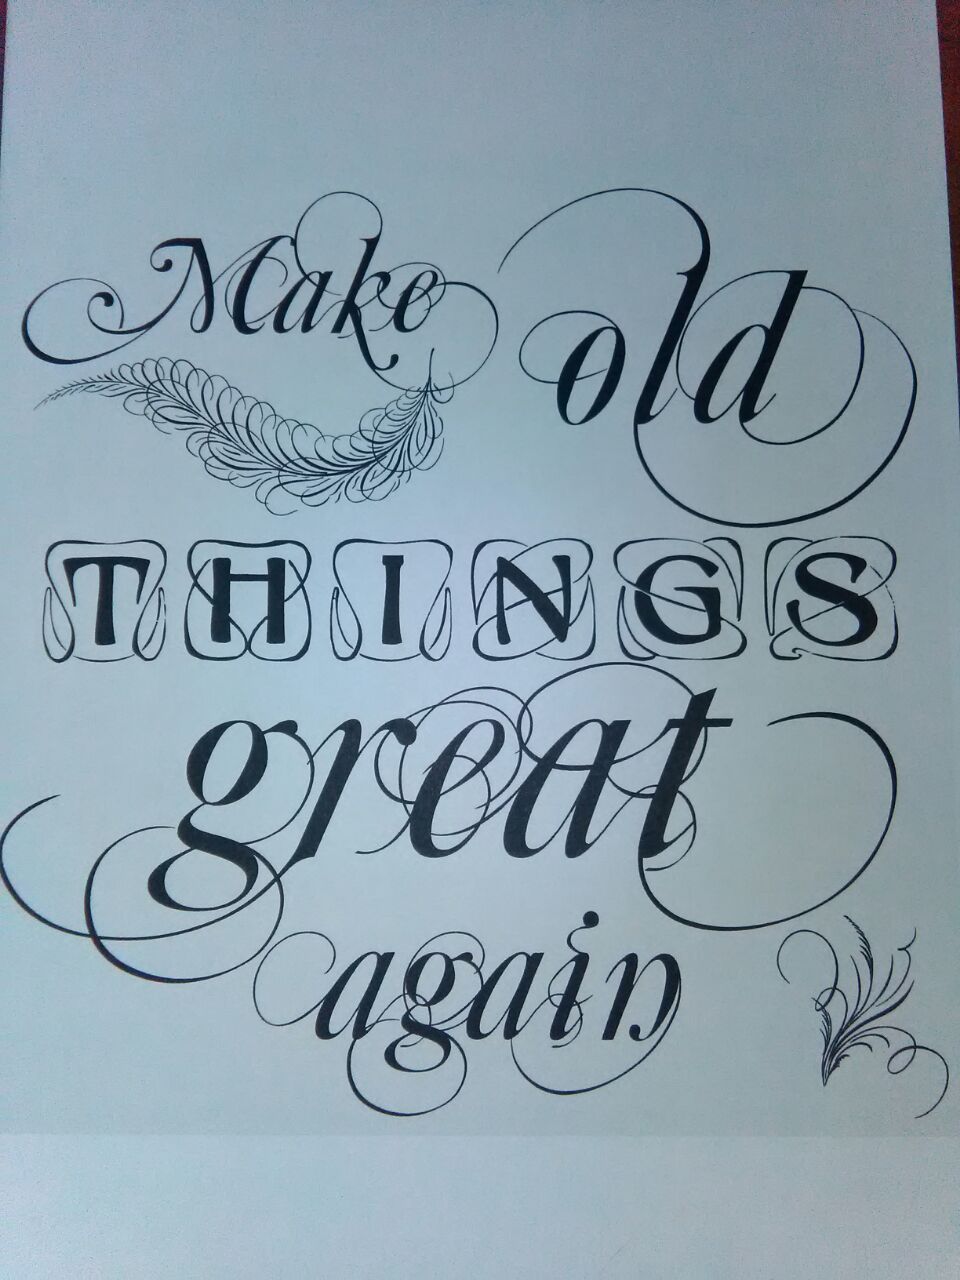 Make old
THINGS
great
again